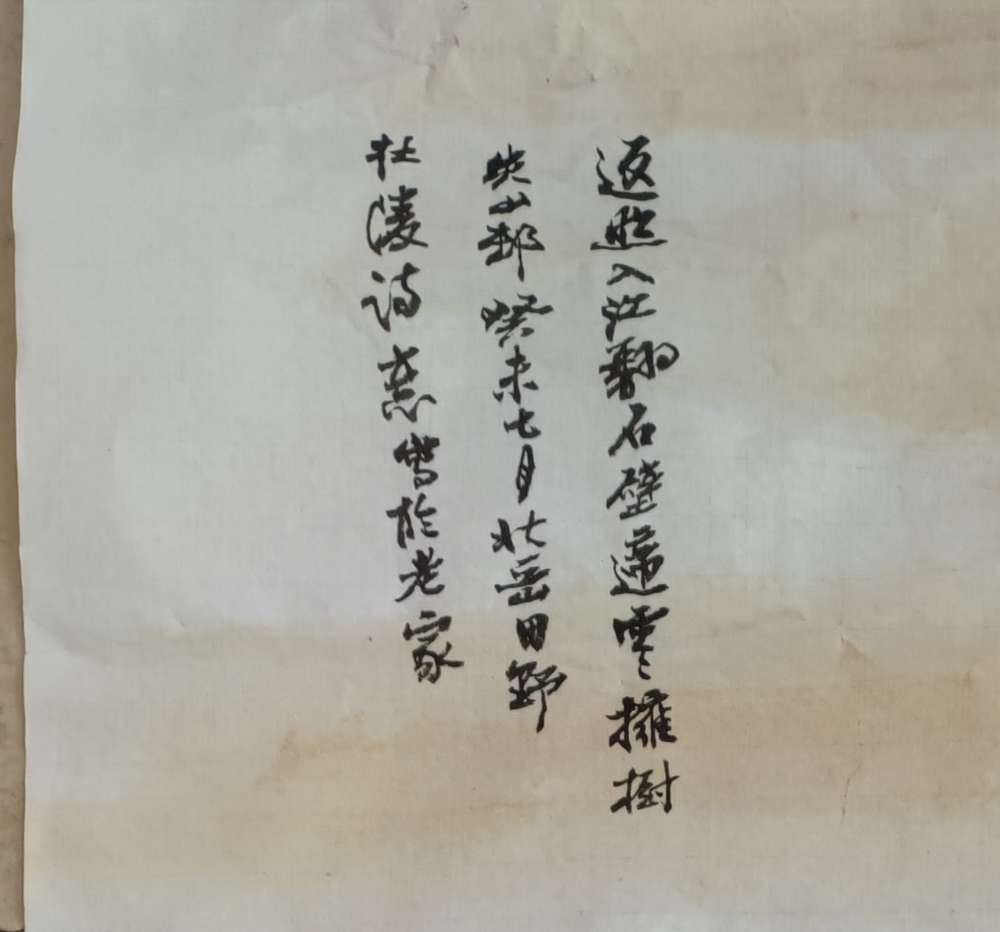 返照入江翻石壁遥雲擁樹
失山邨癸未七月北岳田野
杜陵詩意寫於老家